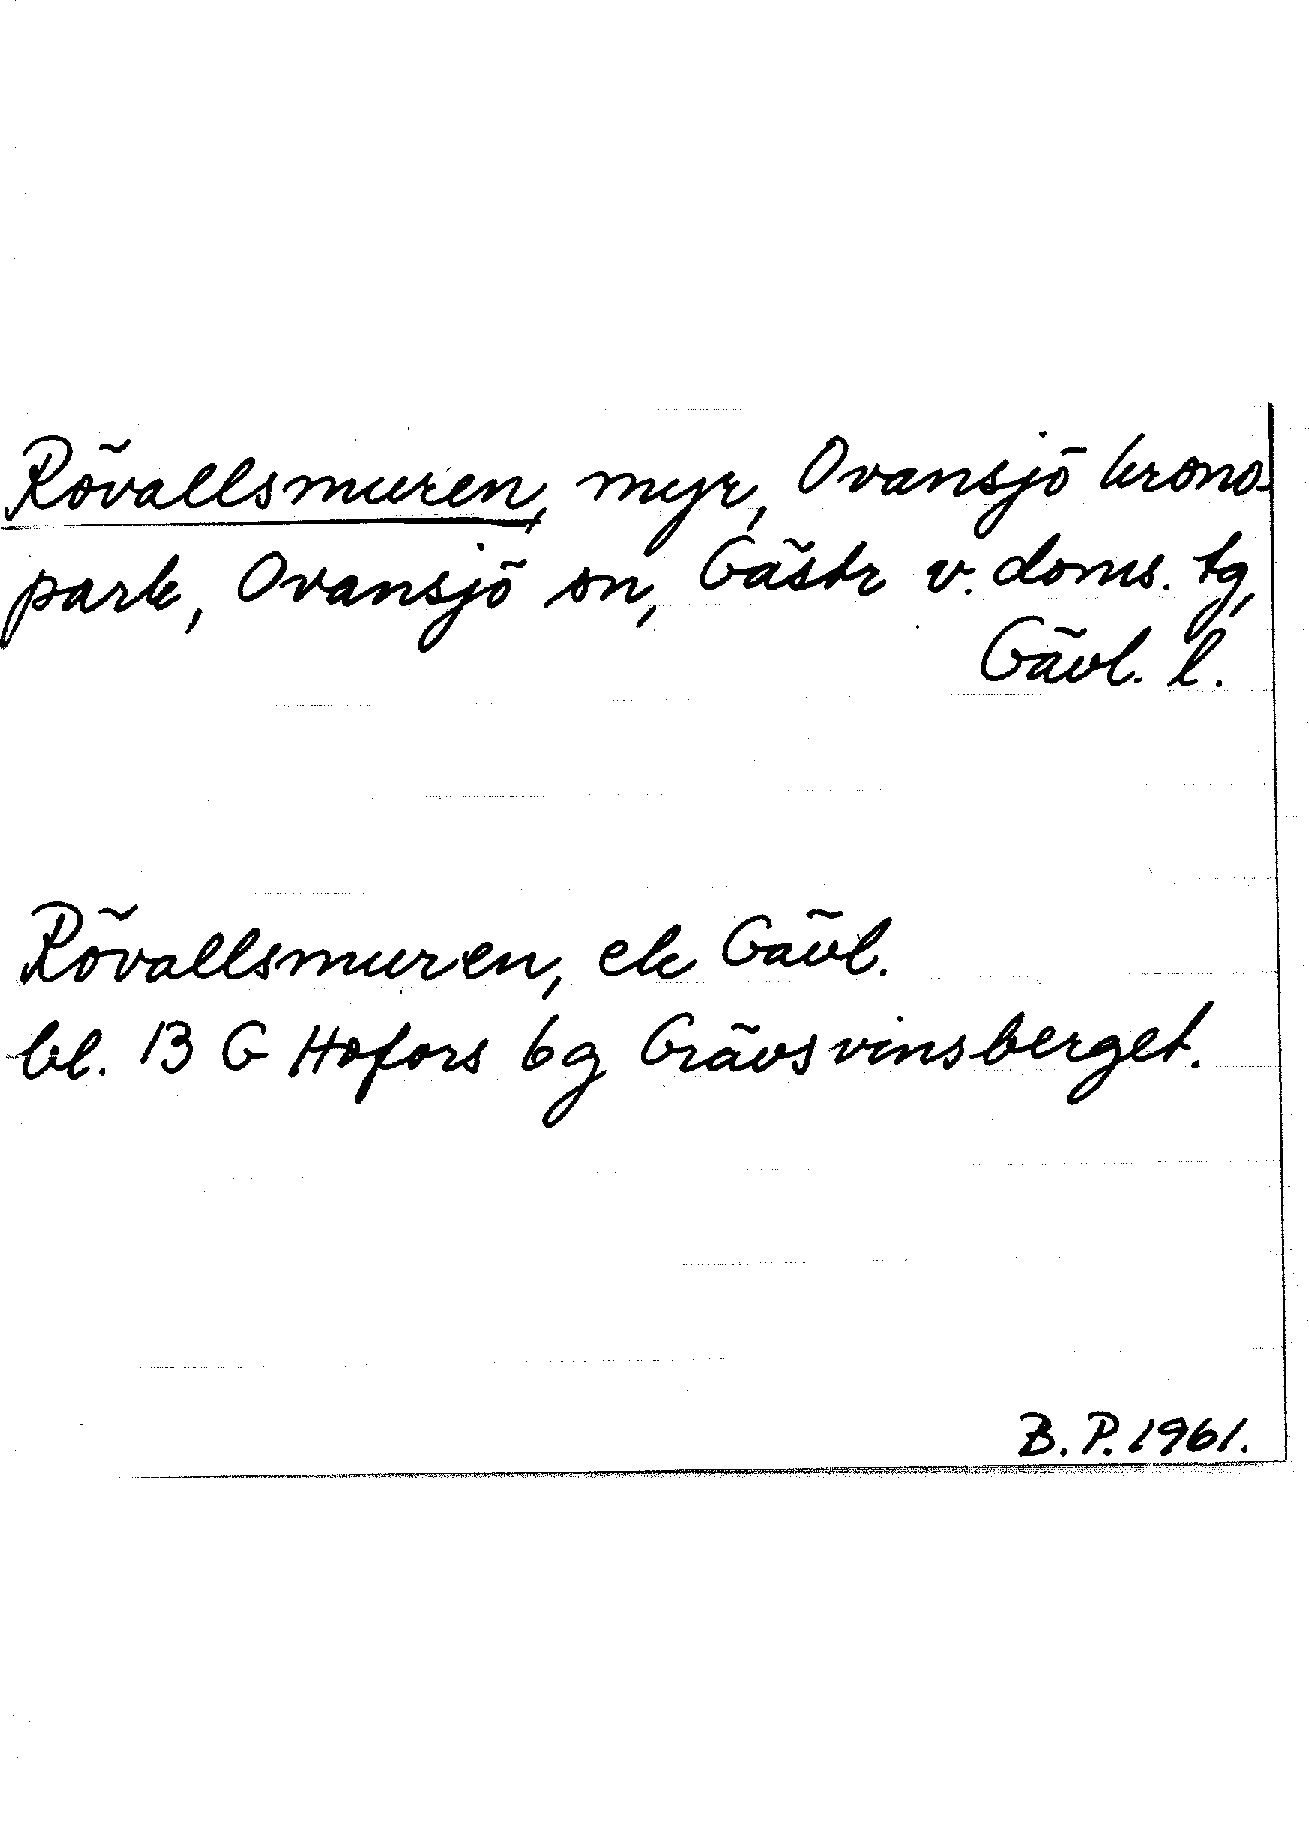 Rövallsmuren, myr, Ovansjö krono-
park, Ovansjö sn, Gästr v. doms. tg,
Gävl. l.
Rövallsmuren, ek Gävl.
bl. 13 G Hofors 6g Grävsvinsberget.
B. P. 1961.